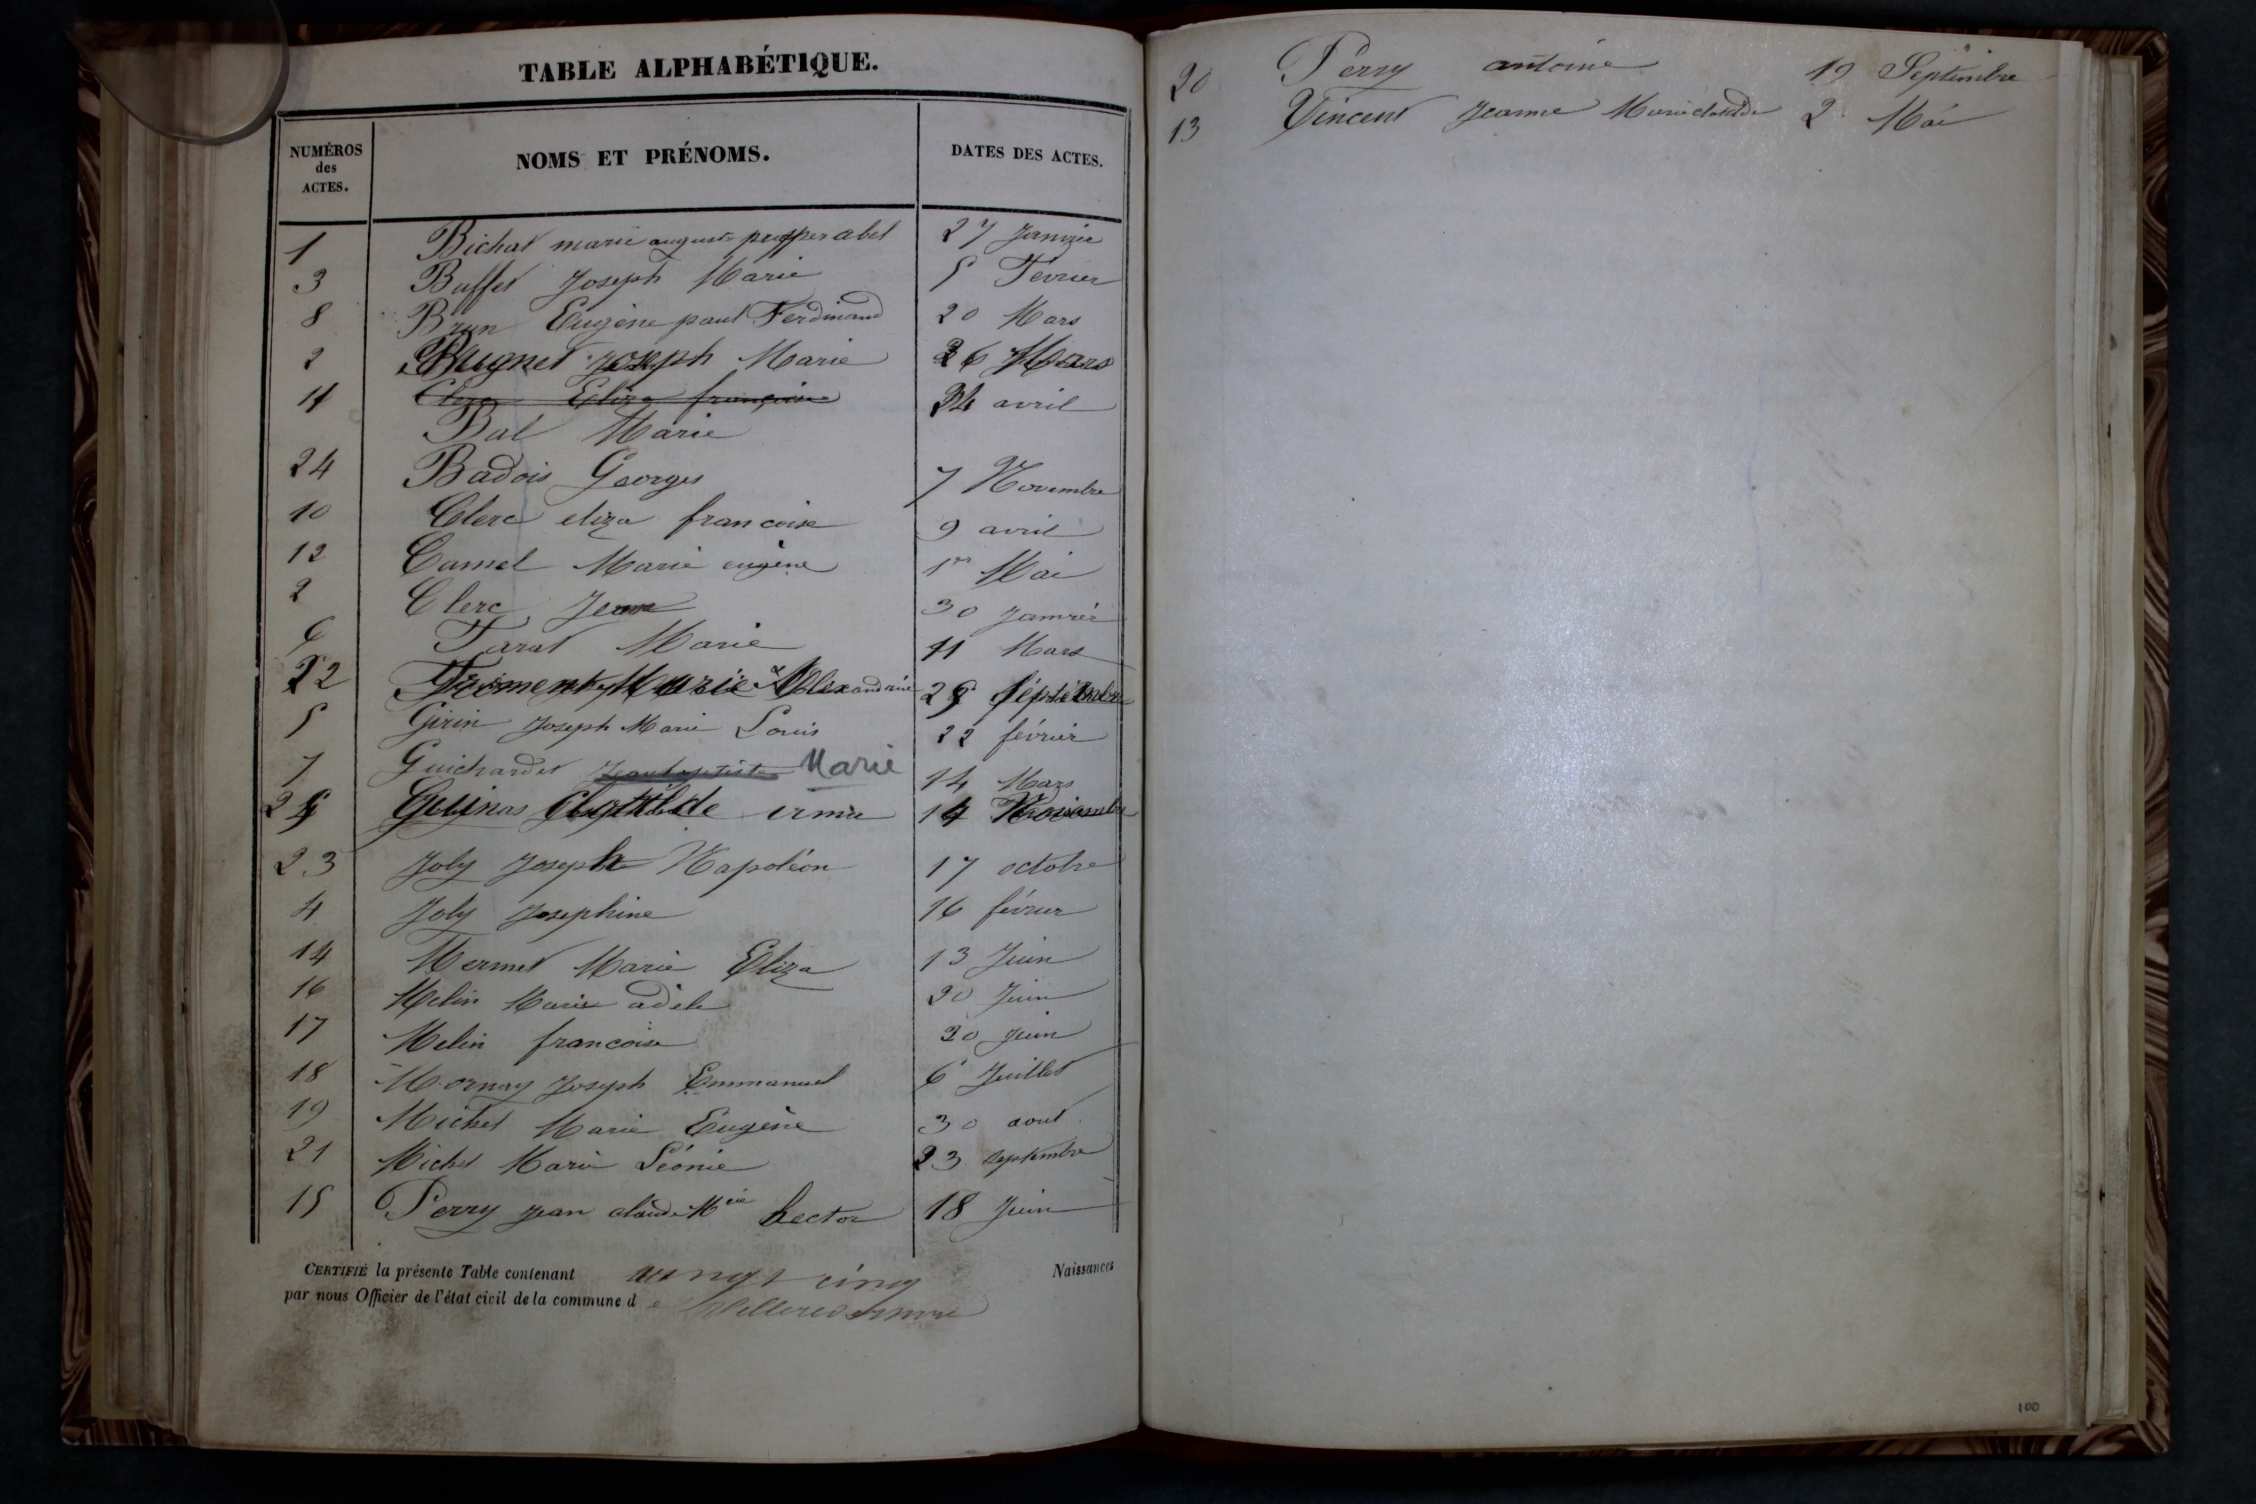 TABLE ALPHABÉTIQUE.
NUMÉROS des ACTES.
NOMS ET PRÉNOMS.
DATES DES ACTES.
1 Bichat marie auguste prosper abel 27 Janvier
3 Buffet Joseph Marie 5 Fevrier
8 Brun Eugène paul Ferdinand 20 Mars
2 Bugnet Joseph Marie 26 Mars
11 Clerc Eliza françoise 24 avril
Bal Marie
24 Badois Georges 7 Novembre
10 Clerc eliza francoise 9 avril
12 Camel Marie eugène 1er Mai
2 Clerc Jean 30 Janvier
6 Farrat Marie 11 Mars
22 Froment Marie Alexandrine 25 Septembre
5 Girin Joseph Marie Louis 22 février
7 Guichardet Jean baptiste Marie 14 Mars
25 Guinas Clothilde irma 14 Novembre
23 Joly Joseph Napoléon 17 octobre
4 Joly Josephine 16 février
14 Mermet Marie Eliza 13 Juin
16 Melin Marie adèle 20 Juin
17 Melin francoise 20 Juin
18 Mornay Joseph Emmanuel 6 Juillet
19 Michel Marie Eugène 30 aout
21 Michel Marie Léonie 23 septembre
15 Perry Jean claude Mie hector 18 Juin
CERTIFIÉ la présente Table contenant vingt cinq Naissances
par nous Officier de l'état civil de la commune de
20 Perry antoine 19 Septembre
13 Vincent Jeanne Marie clotilde 2 Mai
100